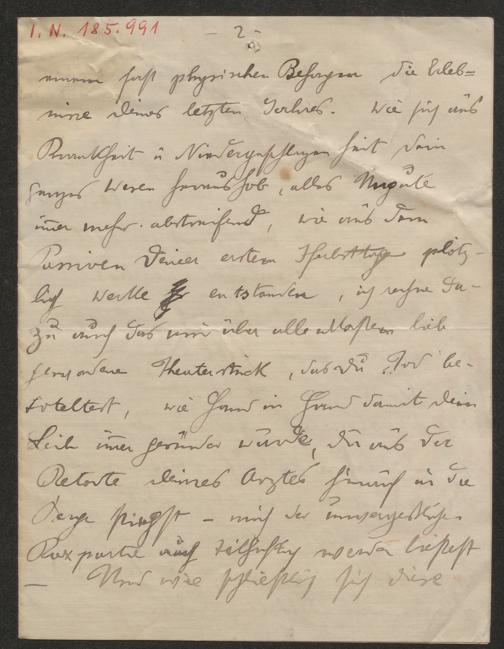 I. N. 185.991
- 2 -
einem fast physischen Behagen die Erleb=
nisse deines letzten Jahres. Wie sich aus
Krankheit u Niedergeschlagen heit dein
ganzes Wesen heraushob, alles Ungute
immer mehr abstreifend, wie aus dem
Passiven deiner ersten Herbsttage plötz-
lich Werke entstanden, ich rechne da-
zu auch das mir über alle Maßen lieb
gewordene Theaterstück, das du Tod be-
titeltest, wie Hand in Hand damit dein
Leib immer gesünder wurde, du aus der
Retorte deines Arztes hinaus in die
Berge stiegst - mich der unvergesslichen
Raxpartie auch werden ließest
- Und wie schließlich sich diese